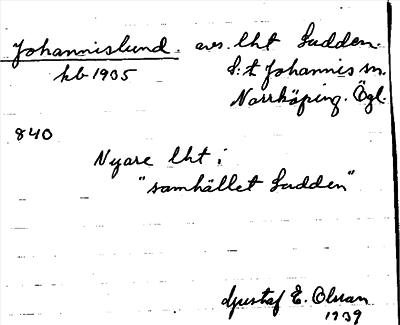 Johannislund. avs. lht Sudden.
kb 1935 S:t Johannis sn.
Norrköping. Ögl.
840
Nyare lht i
"samhället Sudden"
Gustaf E. Olsson
1939